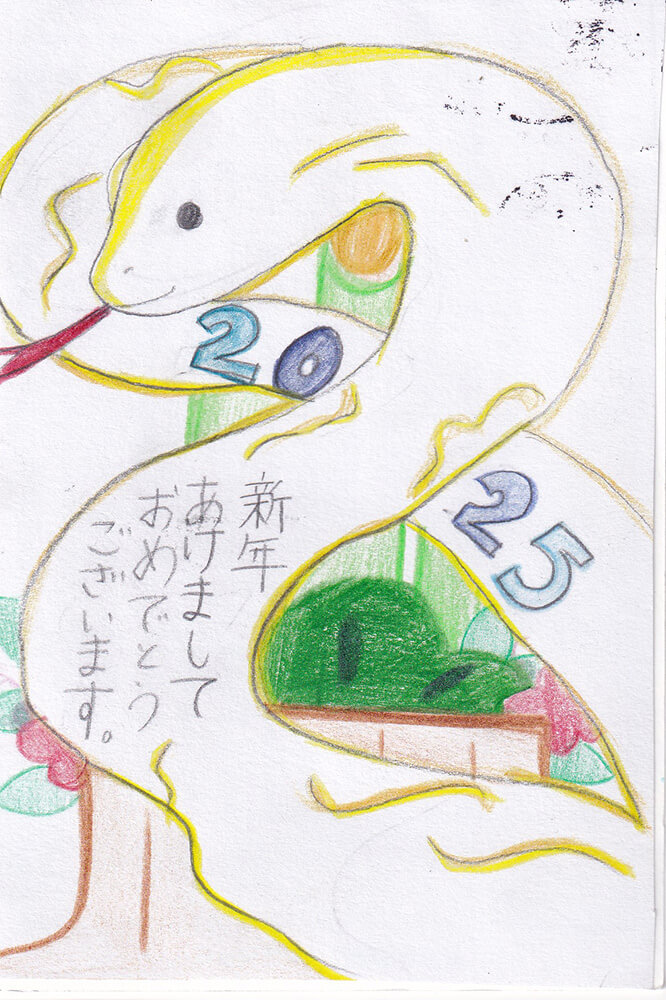 2025
新年
あけまして
おめでとう
ございます。